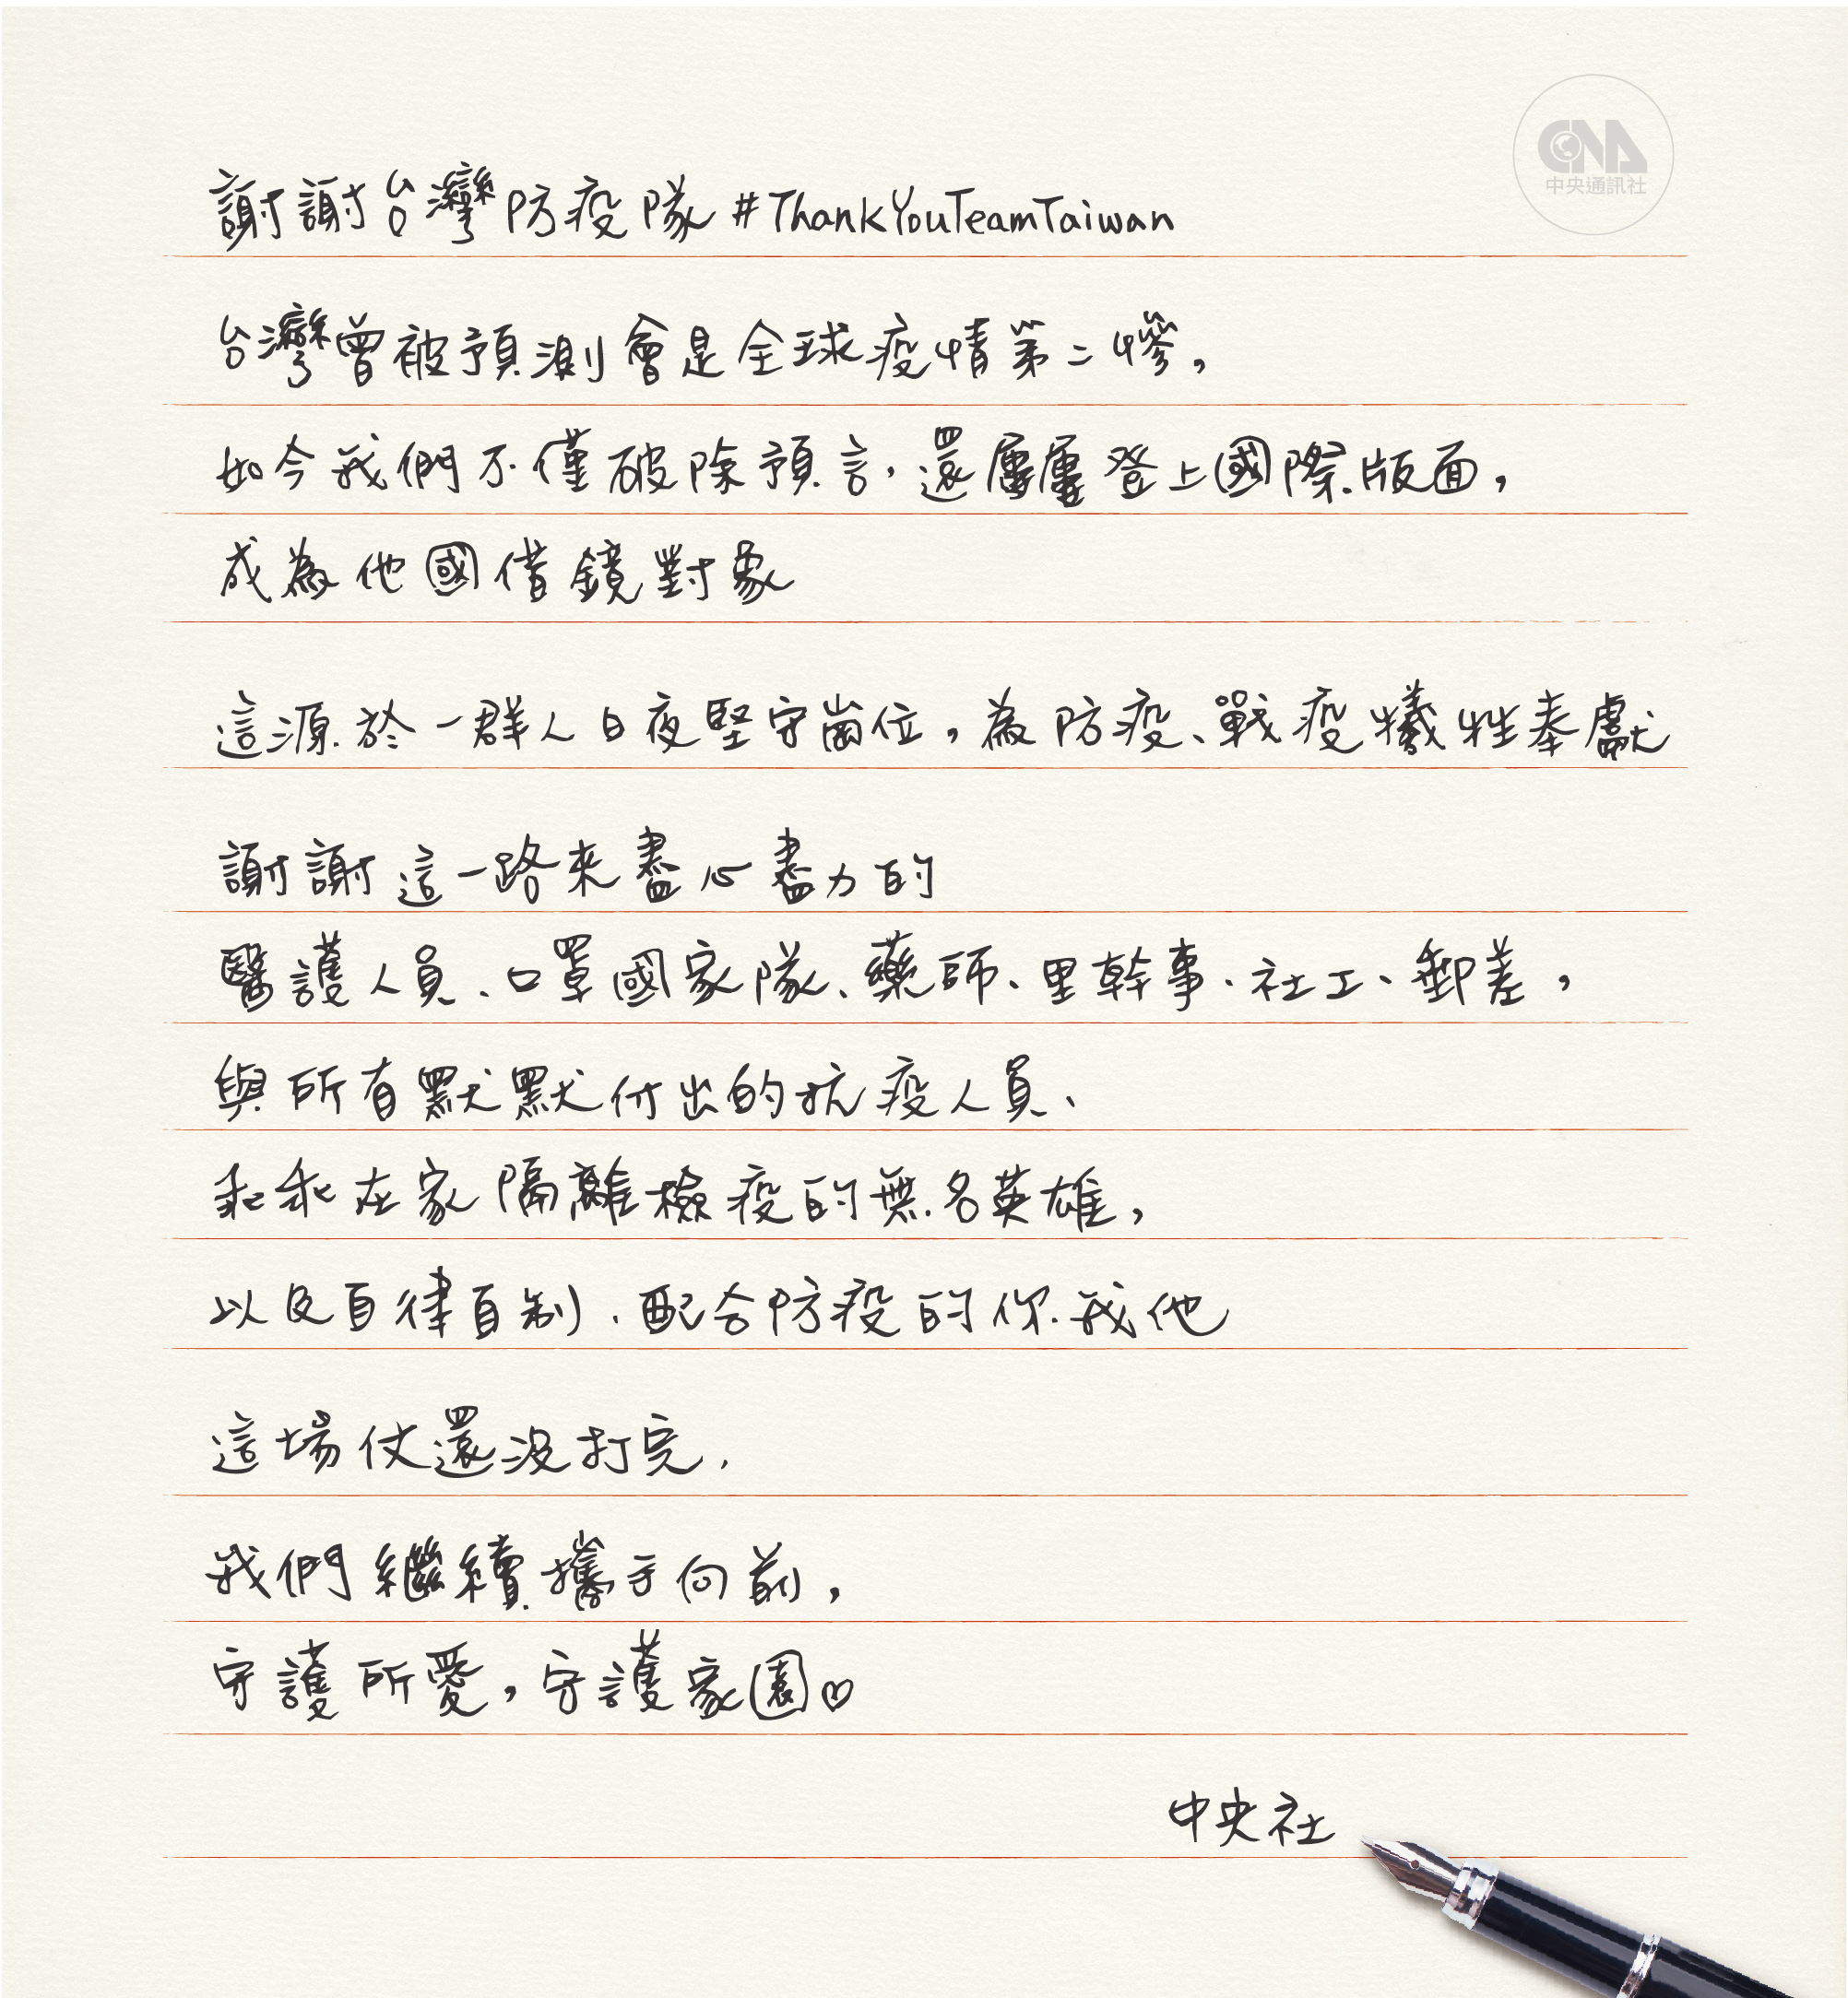 CNA
中央通訊社
謝謝台灣防疫隊 #ThankYouTeamTaiwan
台灣曾被預測會是全球疫情第二慘，
如今我們不僅破除預言，還屢屢登上國際版面，
成為他國借鏡對象
這源於一群人日夜堅守崗位，為防疫、戰疫犧牲奉獻
謝謝這一路來盡心盡力的
醫護人員、口罩國家隊、藥師、里幹事、社工、郵差，
與所有默默付出的抗疫人員、
乖乖在家隔離檢疫的無名英雄，
以及自律自制、配合防疫的你我他
這場仗還沒打完，
我們繼續攜手向前，
守護所愛，守護家園♡
中央社